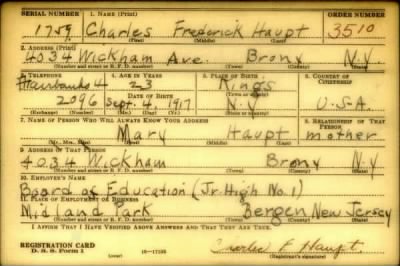 SERIAL NUMBER 1. NAME (Print) ORDER NUMBER
1759 Charles Frederick Haupt 3510
(First) (Middle) (Last)
2. ADDRESS (Print)
4034 Wickham Ave. Bronx N.Y.
(Number and street or R. F. D. number) (Town) (County) (State)
3. TELEPHONE 4. AGE IN YEARS 5. PLACE OF BIRTH 6. COUNTRY OF CITIZENSHIP
Fairbanks 4 23 Kings
DATE OF BIRTH
2096 Sept. 4, 1917 N.Y. U.S.A.
(Exchange) (Number) (Mo.) (Day) (Yr.) (State or country)
7. NAME OF PERSON WHO WILL ALWAYS KNOW YOUR ADDRESS 8. RELATIONSHIP OF THAT PERSON
Mary Haupt mother
(Mr., Mrs., Miss) (First) (Middle) (Last)
9. ADDRESS OF THAT PERSON
4034 Wickham Bronx N.Y
(Number and street or R. F. D. number) (Town) (County) (State)
10. EMPLOYER'S NAME
Board of Education (Jr. High No. 1)
11. PLACE OF EMPLOYMENT OR BUSINESS
Midland Park Bergen New Jersey
(Number and street or R. F. D. number) (Town) (County) (State)
I AFFIRM THAT I HAVE VERIFIED ABOVE ANSWERS AND THAT THEY ARE TRUE.
REGISTRATION CARD
D. S. S. Form 1 (over) 16—17105 Charles F. Haupt
(Registrant's signature)